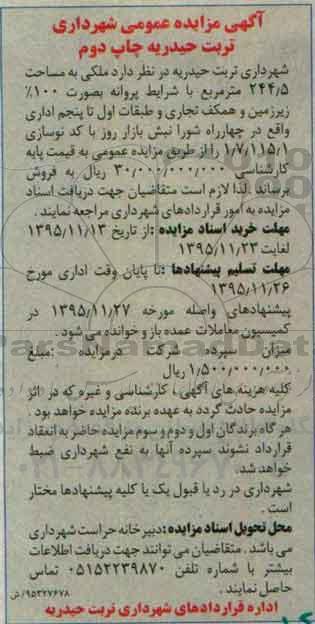 آگهی مزایده عمومی شهرداری
تربت حیدریه چاپ دوم
شهرداری تربت حیدریه در نظر دارد ملکی به مساحت
۲۴۴٫۵ مترمربع با شرایط پروانه بصورت ۱۰۰٪
زیرزمین و همکف تجاری و طبقات اول تا پنجم اداری
واقع در چهارراه شورا نبش بازار روز با کد نوسازی
۱/۷/۱۱۵/۱ را از طریق مزایده عمومی به قیمت پایه
کارشناسی ۳۰/۰۰۰/۰۰۰/۰۰۰ ریال به فروش
برساند .لذا لازم است متقاضیان جهت دریافت اسناد
مزایده به امور قراردادهای شهرداری مراجعه نمایند .
مهلت خرید اسناد مزایده :از تاریخ ۱۳۹۵/۱۱/۱۳
لغایت ۱۳۹۵/۱۱/۲۳
مهلت تسلیم پیشنهادها :تا پایان وقت اداری مورخ
۱۳۹۵/۱۱/۲۶
پیشنهادهای واصله مورخه ۱۳۹۵/۱۱/۲۷ در
کمیسیون معاملات عمده باز و خوانده می شود .
میزان سپرده شرکت درمزایده :مبلغ
۱/۵۰۰/۰۰۰/۰۰۰ ریال
کلیه هزینه های آگهی ، کارشناسی و غیره که در اثر
مزایده حادث گردد به عهده برنده مزایده خواهد بود .
هر گاه برندگان اول و دوم و سوم مزایده حاضر به انعقاد
قرارداد نشوند سپرده آنها به نفع شهرداری ضبط
خواهد شد.
شهرداری در رد یا قبول یک یا کلیه پیشنهادها مختار
است .
محل تحویل اسناد مزایده :دبیرخانه حراست شهرداری
می باشد . متقاضیان می توانند جهت دریافت اطلاعات
بیشتر با شماره تلفن ۰۵۱۵۲۲۳۹۸۷۰ تماس
حاصل نمایند .
۹۵۳۲۷۶۷۸/ ش
اداره قراردادهای شهرداری تربت حیدریه